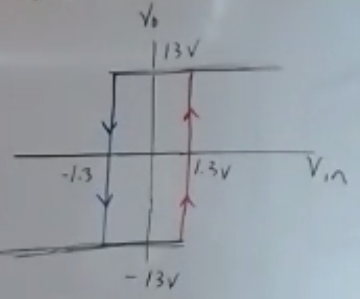 V₀
13V
-1.3
1.3V
Vin
-13V